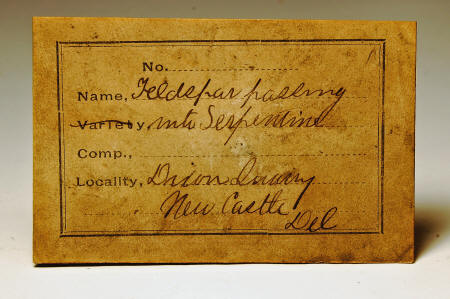 No.
Name, Feldspar passing
Variety into Serpentine
Comp.,
Locality, Dixon Quarry
New Castle
Del